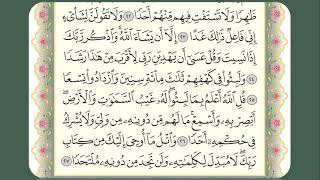 ظَٰهِرًا وَلَا تَسْتَفْتِ فِيهِم مِّنْهُمْ أَحَدًا ٢٢ وَلَا تَقُولَنَّ لِشَا۟ىْءٍ
إِنِّى فَاعِلٌ ذَٰلِكَ غَدًا ٢٣ إِلَّآ أَن يَشَآءَ ٱللَّهُ وَٱذْكُر رَّبَّكَ
إِذَا نَسِيتَ وَقُلْ عَسَىٰٓ أَن يَهْدِيَنِ رَبِّى لِأَقْرَبَ مِنْ هَٰذَا رَشَدًا
٢٤ وَلَبِثُوا۟ فِى كَهْفِهِمْ ثَلَٰثَ مِا۟ئَةٍ سِنِينَ وَٱزْدَادُوا۟ تِسْعًا
٢٥ قُلِ ٱللَّهُ أَعْلَمُ بِمَا لَبِثُوا۟ لَهُۥ غَيْبُ ٱلسَّمَٰوَٰتِ وَٱلْأَرْضِ
أَبْصِرْ بِهِۦ وَأَسْمِعْ مَا لَهُم مِّن دُونِهِۦ مِن وَلِىٍّ وَلَا يُشْرِكُ
فِى حُكْمِهِۦٓ أَحَدًا ٢٦ وَٱتْلُ مَآ أُوحِىَ إِلَيْكَ مِن كِتَابِ
رَبِّكَ لَا مُبَدِّلَ لِكَلِمَٰتِهِۦ وَلَن تَجِدَ مِن دُونِهِۦ مُلْتَحَدًا ٢٧